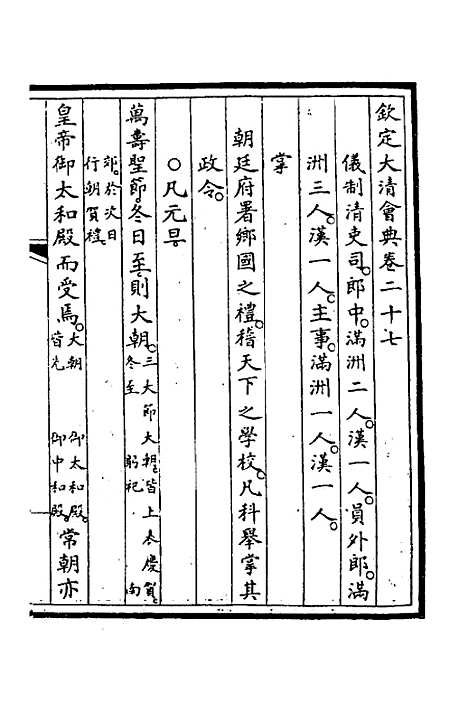 欽定大清會典卷二十七
儀制清吏司。郎中。滿洲二人。漢一人。員外郎。滿
洲三人。漢一人。主事。滿洲一人。漢一人。
掌
朝廷府署鄉國之禮。稽天下之學校。凡科舉掌其
政令。
○凡元旦。
萬壽聖節。冬日至。則大朝。三大節大朝。皆上表慶賀。冬至 躬祀 南
郊。於次日行朝賀禮。
皇帝御太和殿而受焉。大朝皆先 御中和殿。 御太和殿。常朝亦